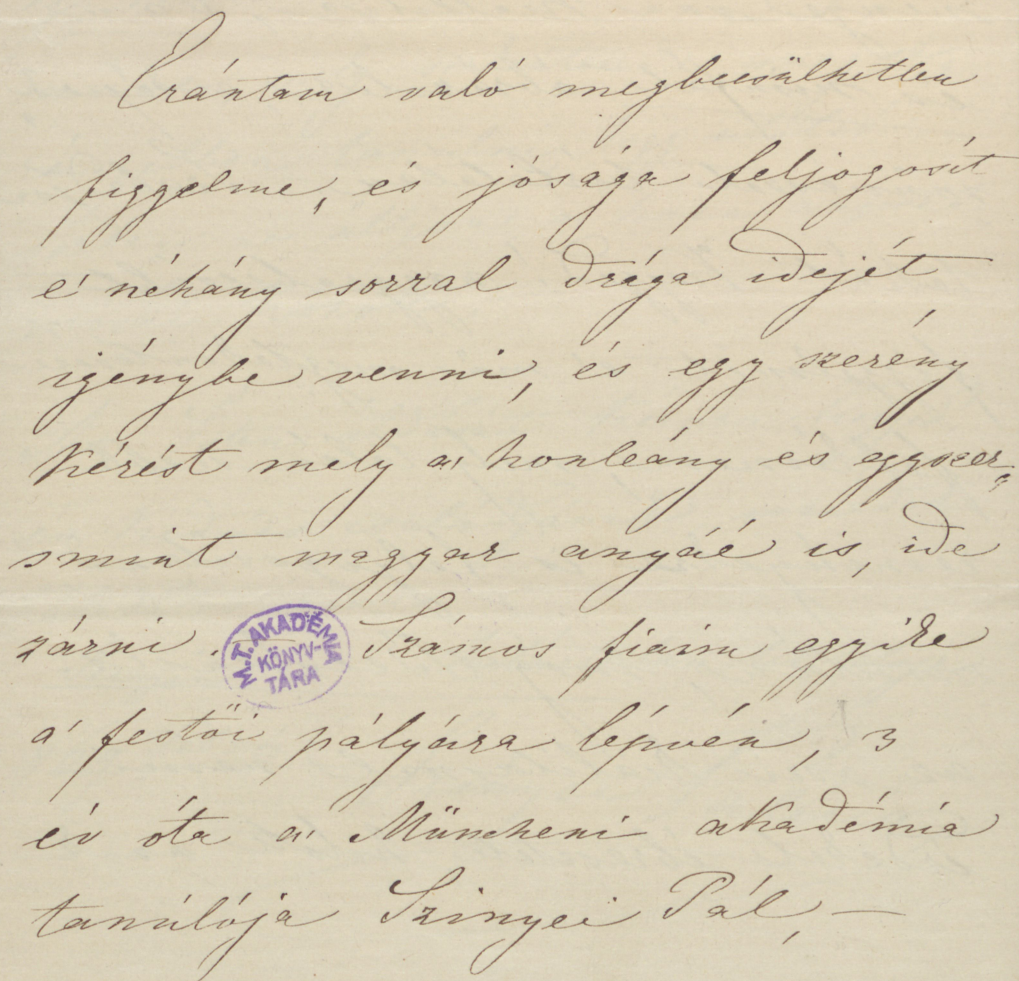 Erántam való megbecsülhetlen
figgelme, és jósága feljogosít
e' néhány sorral drága idejét
igénybe venni, és egy szerény
kérést mely a' honleány és egyszer„
smint magyar anyáé is, ide
zárni. Számos fiaim egyike
M.T. AKADÉMIA
KÖNYV-
TÁRA
a' festői pályára lépvén, 3
év óta a' Müncheni akadémia
tanúlója Szinyei Pál, —